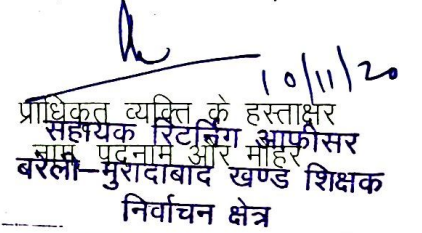 10/11/20
प्राधिकृत व्यक्ति के हस्ताक्षर
सहायक रिटर्निंग आफीसर
नाम पदनाम और मोहर
बरेली–मुरादाबाद खण्ड शिक्षक
निर्वाचन क्षेत्र